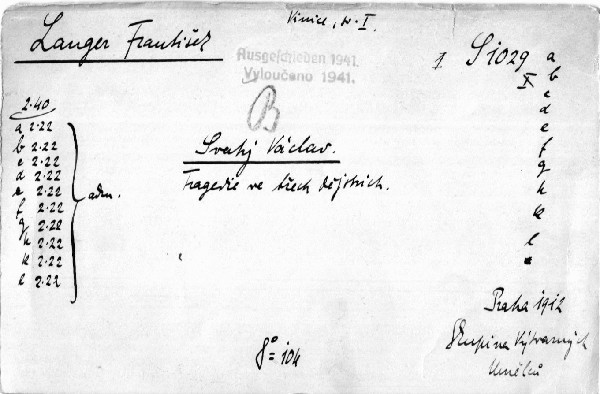 Langer František
Vinice, sv. I.
Ausgeschieden 1941.
Vyloučeno 1941.
B
S 1029 a
X b
c
d
e
f
g
h
k
l
2.40
a 2.22
b 2.22
c 2.22
d 2.22
e 2.22
f 2.22
g 2.22
h 2.22
k 2.22
l 2.22
adm.
Svatý Václav.
Tragedie ve třech dějstvích.
Praha 1912
Skupina Výtvarných
Umělců
8° = 104